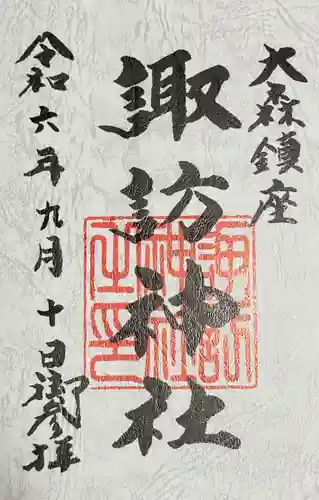 大森鎮座
諏訪神社
令和六年九月十日御参拝
諏訪神社之印